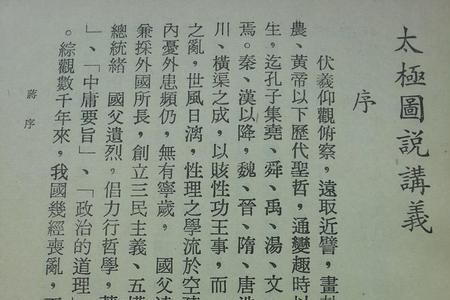 太極圖說講義
序
伏羲仰觀俯察，遠取近譬，畫
農、黃帝以下歷代聖哲，通變趣時以
生，迄孔子集堯、舜、禹、湯、文
焉。秦、漢以降，魏、晉、隋、唐
川、橫渠之成，以賅性功王事，而
之亂，世風日漓，性理之學流於空
內憂外患頻仍，無有寧歲。　國父
兼採外國所長，創立三民主義、五權
總統緒　國父遺烈，倡力行哲學，
」、「中庸要旨」、「政治的道理
。綜觀數千年來，我國幾經喪亂，
蔣序